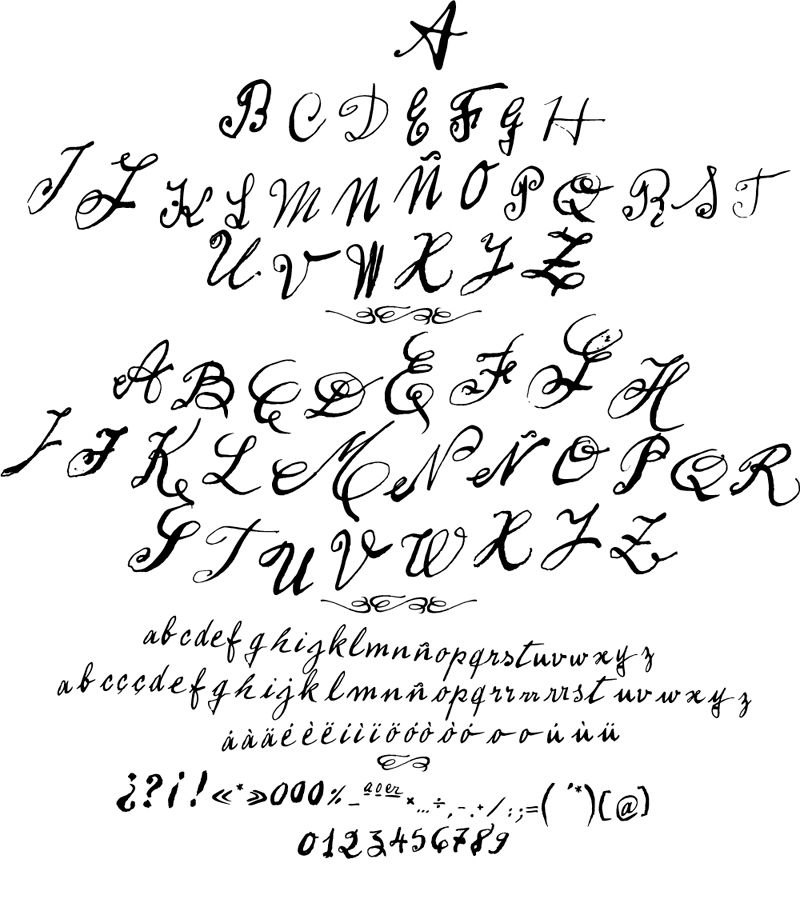 A
B C D E F G H
I J K L M N Ñ O P Q R S T
U V W X Y Z
A B C D E F G H
I J K L M N Ñ O P Q R
S T U V W X Y Z
abcdefghijklmnñopqrstuvwxyz
abcççdefghijklmnñopqrrrrrstuvwxyz
áàäéèëíìïöóòòóooúùü
¿?¡!«*»000%_aoer×...÷,-.+/:;=(´*)[@]
0123456789